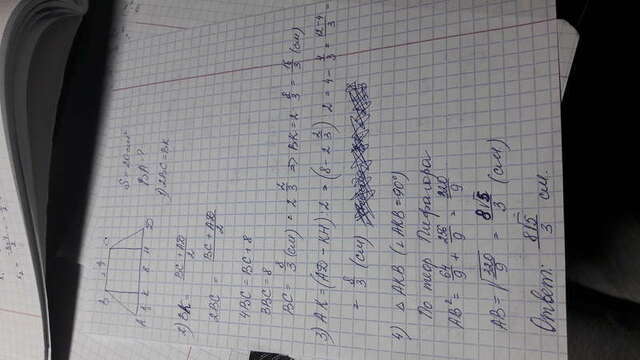 S = 20 см²
BA ?
1) 2BC = BK
2) BK = BC + AD / 2
2BC = BC + AD / 2
4BC = BC + 8
3BC = 8
BC = 8/3 (см) = 2 2/3 => BK = 2 · 8/3 = 16/3 (см)
3) AK (AD - KH) : 2 = (8 - 2 2/3) : 2 = 4 - 4/3 = 12-4/3 =
= 8/3 (см)
4) △ AKB (∠AKB = 90°)
По теор Пифагора
AB² = 64/9 + 256/9 = 320/9
AB = √320/9 = 8√5/3 (см)
Ответ: 8√5/3 см.